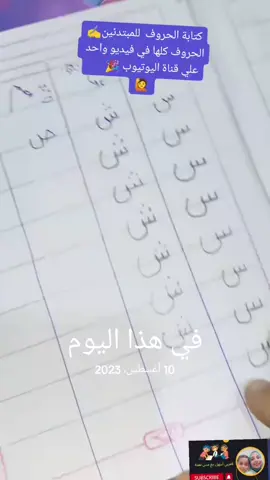 كتابة الحروف للمبتدئين✍️
الحروف كلها في فيديو واحد
علي قناة اليوتيوب 🎉
🙋
س ش ص
س ش
س ش
س ش
س ش
س ش
س ش
س
في هذا اليوم
10 أغسطس، 2023
SUBSCRIBE